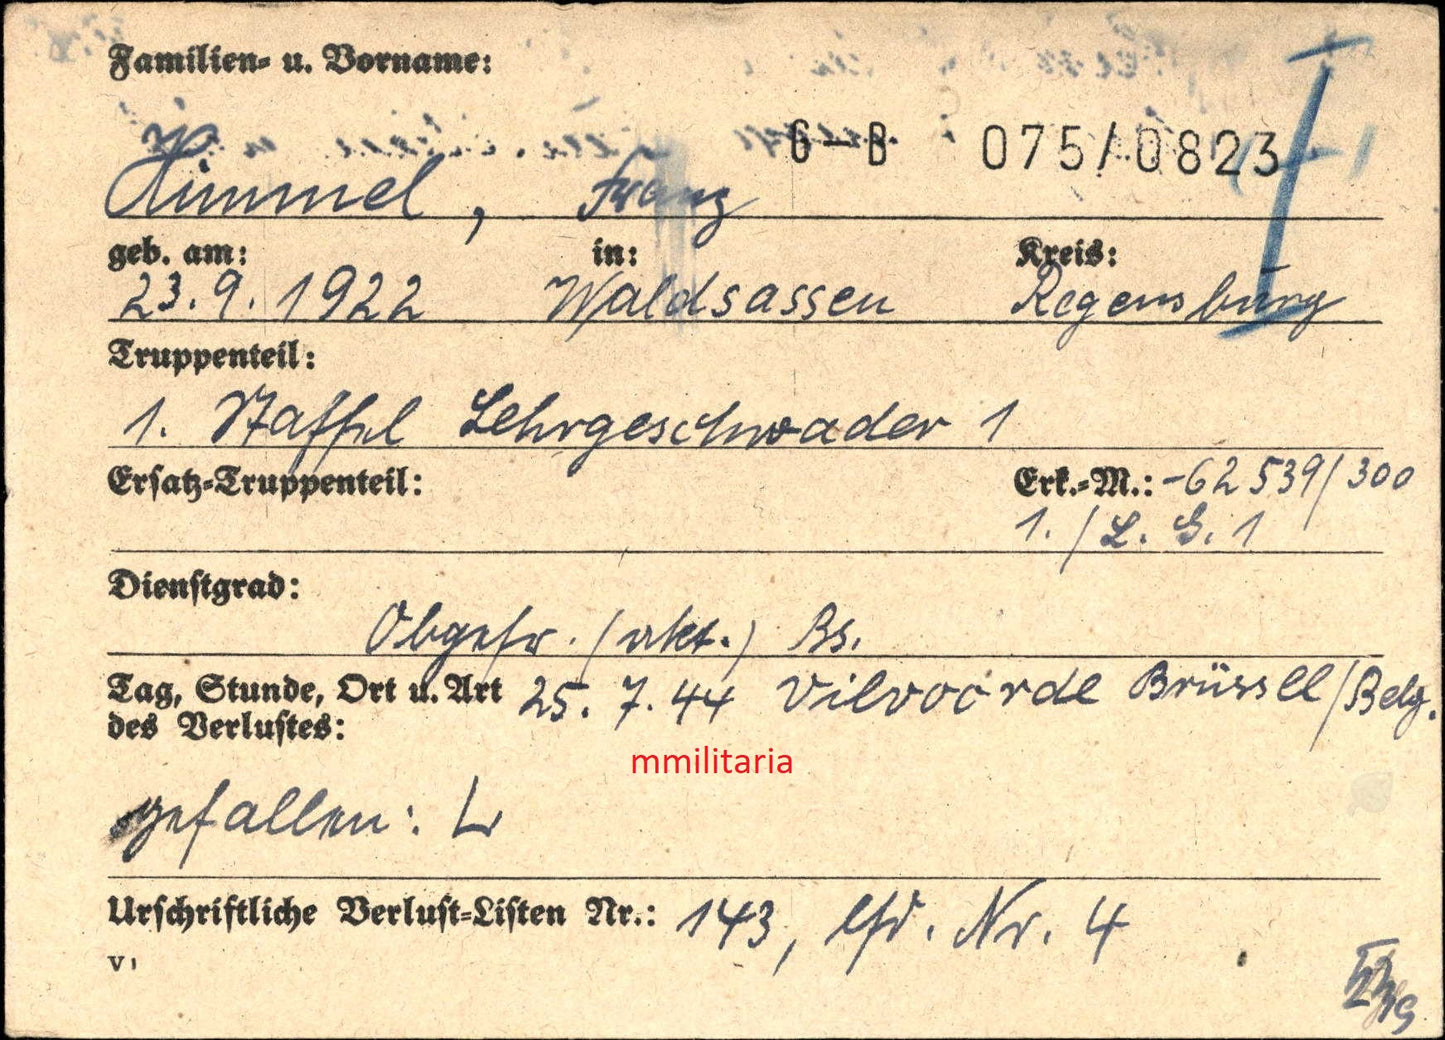 Familien- u. Vorname:
G-B 075/0823
Himmel, Franz
geb. am: in: Kreis:
23.9.1922 Waldsassen Regensburg
Truppenteil:
1. Staffel Lehrgeschwader 1
Ersatz-Truppenteil: Erk.-M.: -62539/300
1./L.G.1
Dienstgrad:
Obgefr. (akt.) Bs.
Tag, Stunde, Ort u. Art 25.7.44 Vilvoorde Brüssel/Belg.
des Verlustes:
mmilitaria
gefallen:
Urschriftliche Verlust-Listen Nr.: 143, lfd. Nr. 4
V,